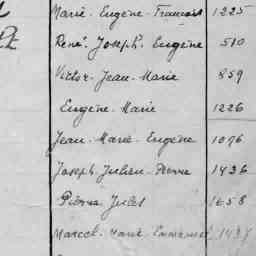 Marie-Eugène-François 1225
René Joseph Eugène 510
Victor-Jean-Marie 859
Eugène-Marie 1226
Jean-Marie-Eugène 1096
Joseph-Julien-Pierre 1436
Pierre Jules 1658
Marcel-Marie-Emmanuel